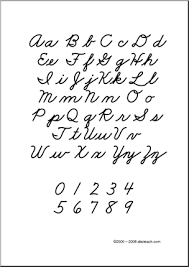 Aa Bb Cc Dd
Ee Ff Gg Hh
Ii Jj Kk Ll
Mm Nn Oo
Pp Qq Rr Ss
Tt Uu Vv
Ww Xx Yy Zz
0 1 2 3 4
5 6 7 8 9
©2001 - 2008 abcteach.com